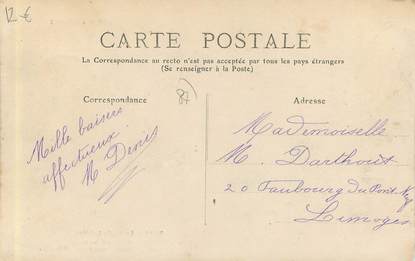 12 €
CARTE POSTALE
La Correspondance au recto n'est pas acceptée par tous les pays étrangers
(Se renseigner à la Poste)
Correspondance
87)
Adresse
Mille baisers
affectueux
M Denis
Mademoiselle
M. Darthout
20 Faubourg du Pont Neuf
Limoges